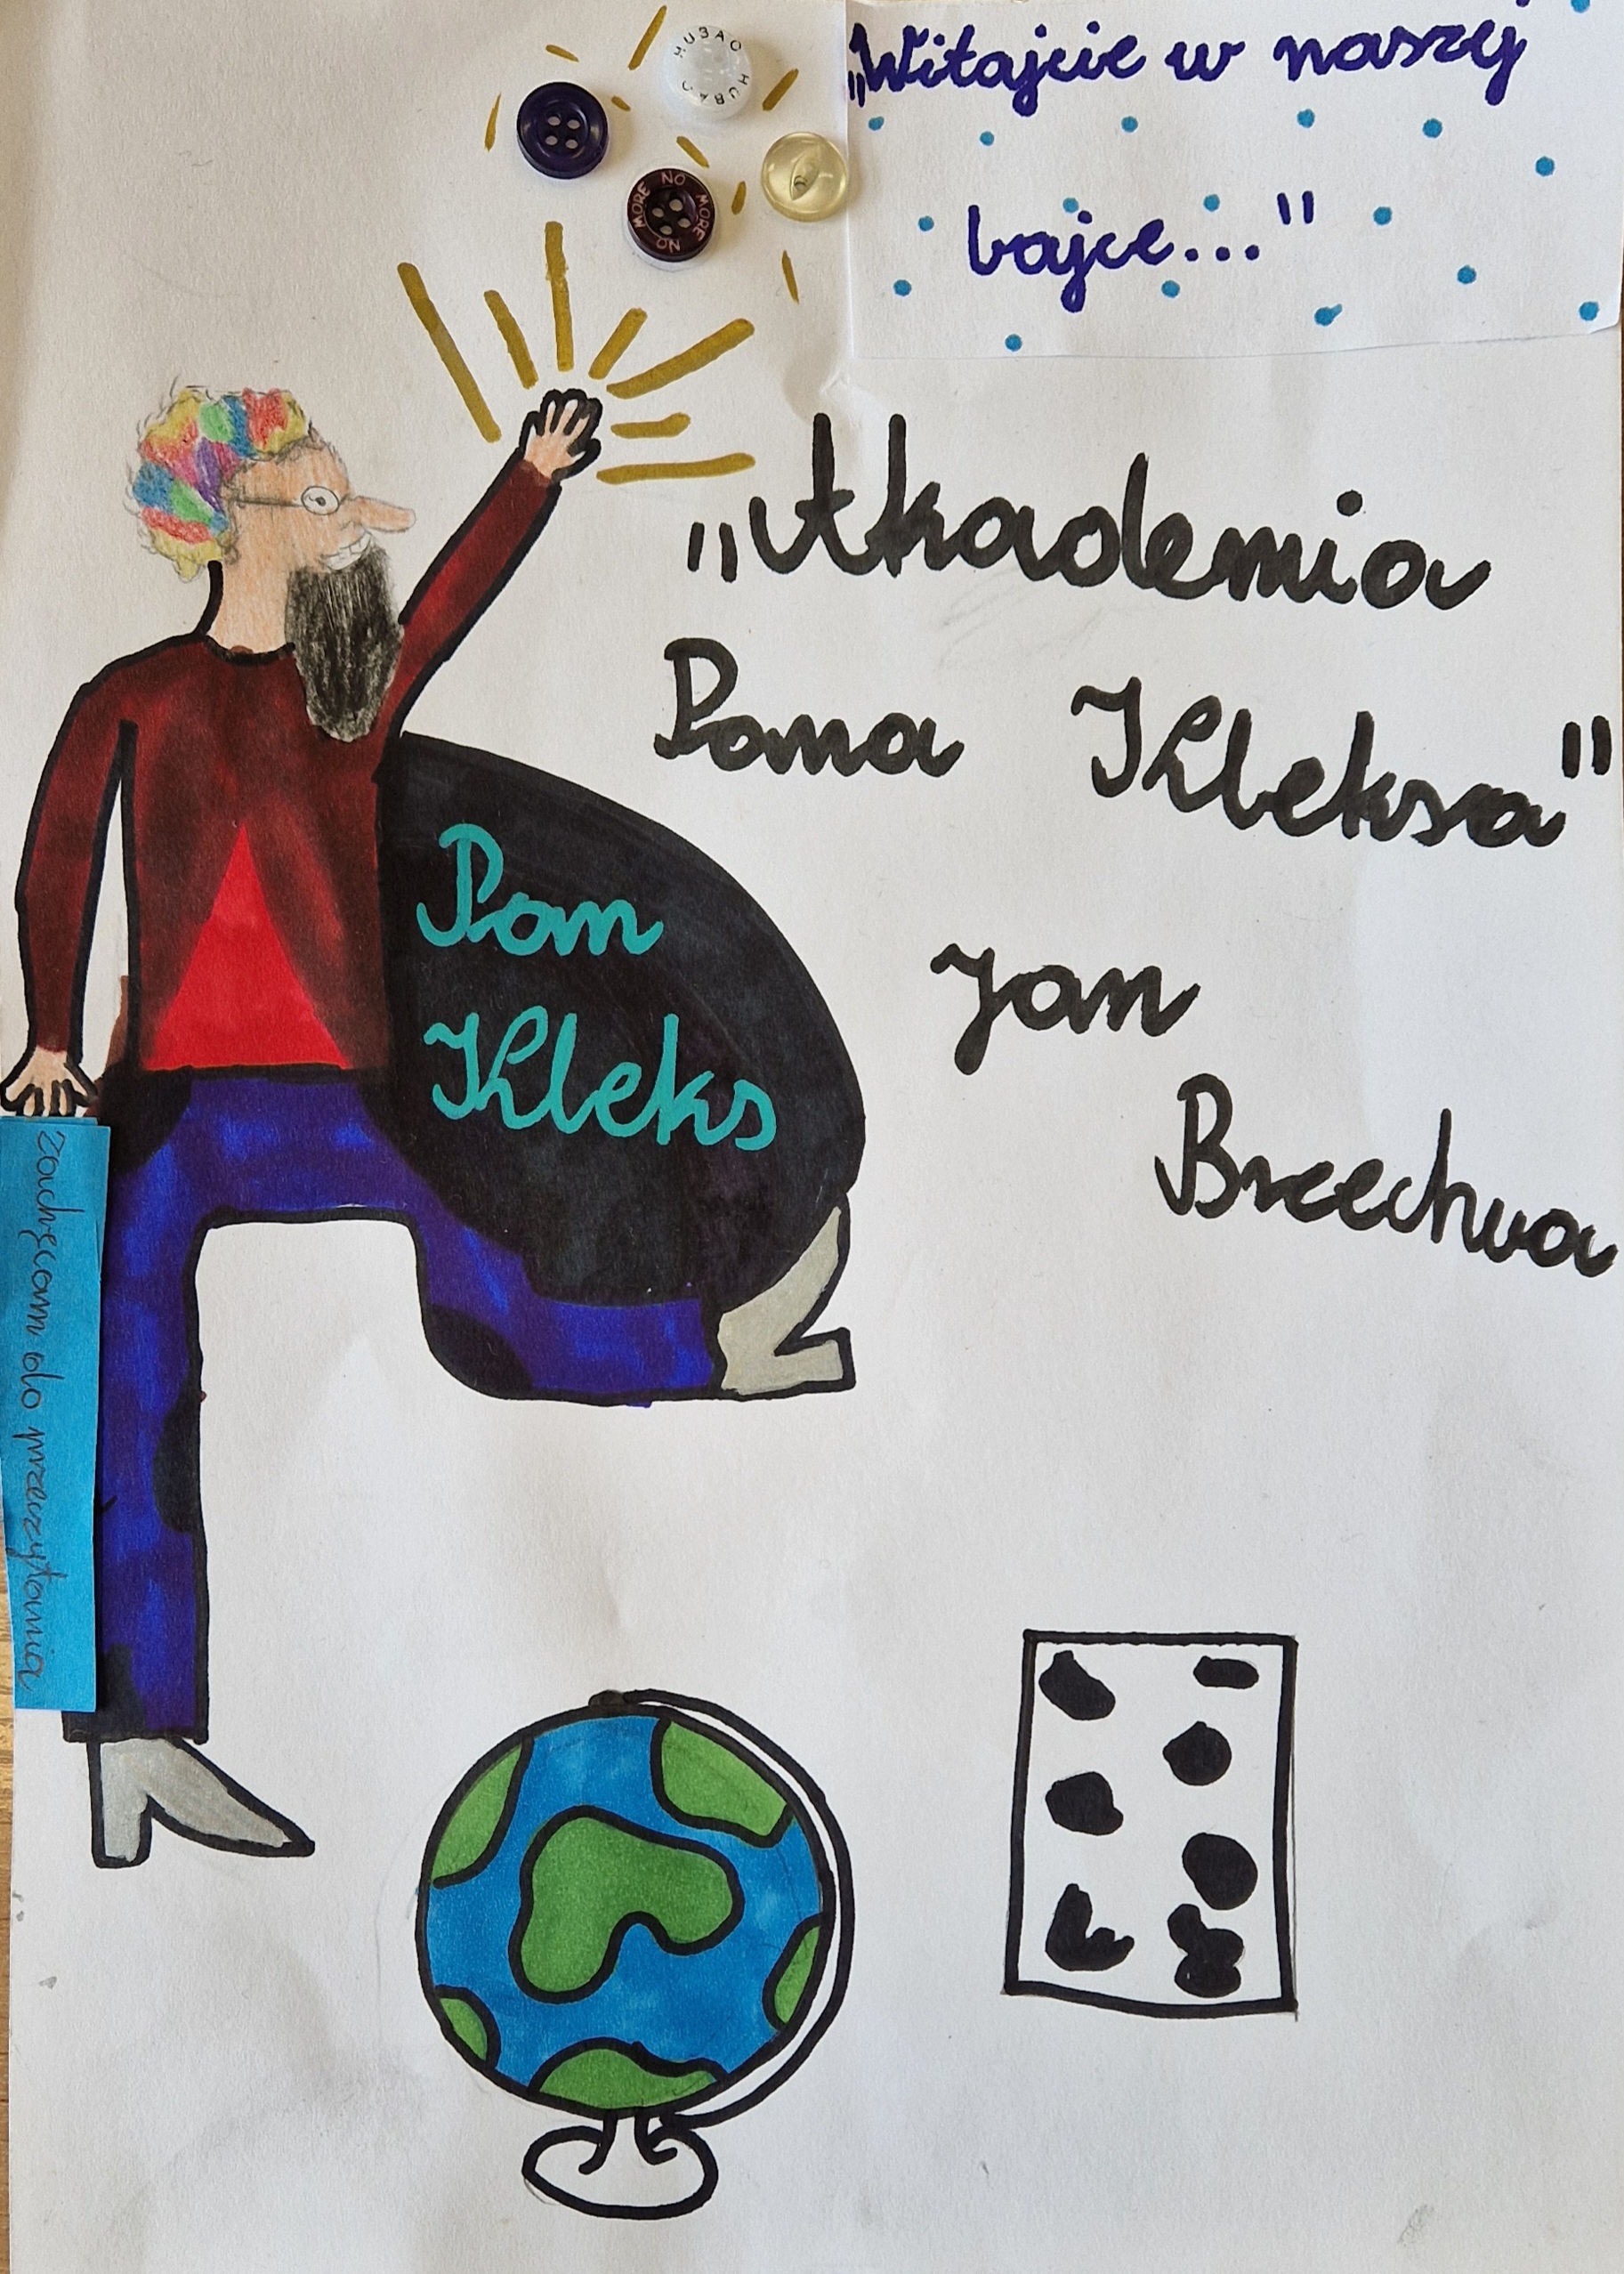 „Witajcie w naszej
bajce..."
„Akademia
Pana Kleksa"
Jan
Brzechwa
Pan
Kleks
Zachęcam do przeczytania
HUBAO HUBAO
NO MORE NO MORE